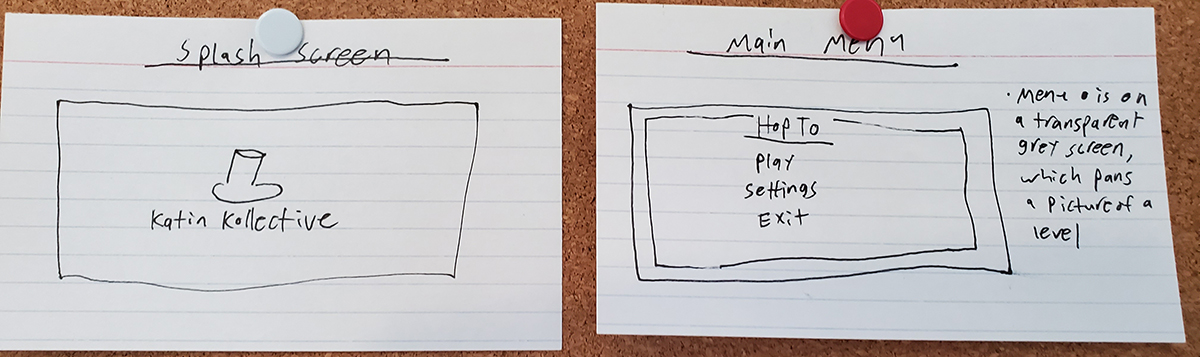 Splash Screen
Katin Kollective
Main Menu
Hop To
Play
Settings
Exit
• Menu is on
a transparent
grey screen,
which pans
a picture of a
level